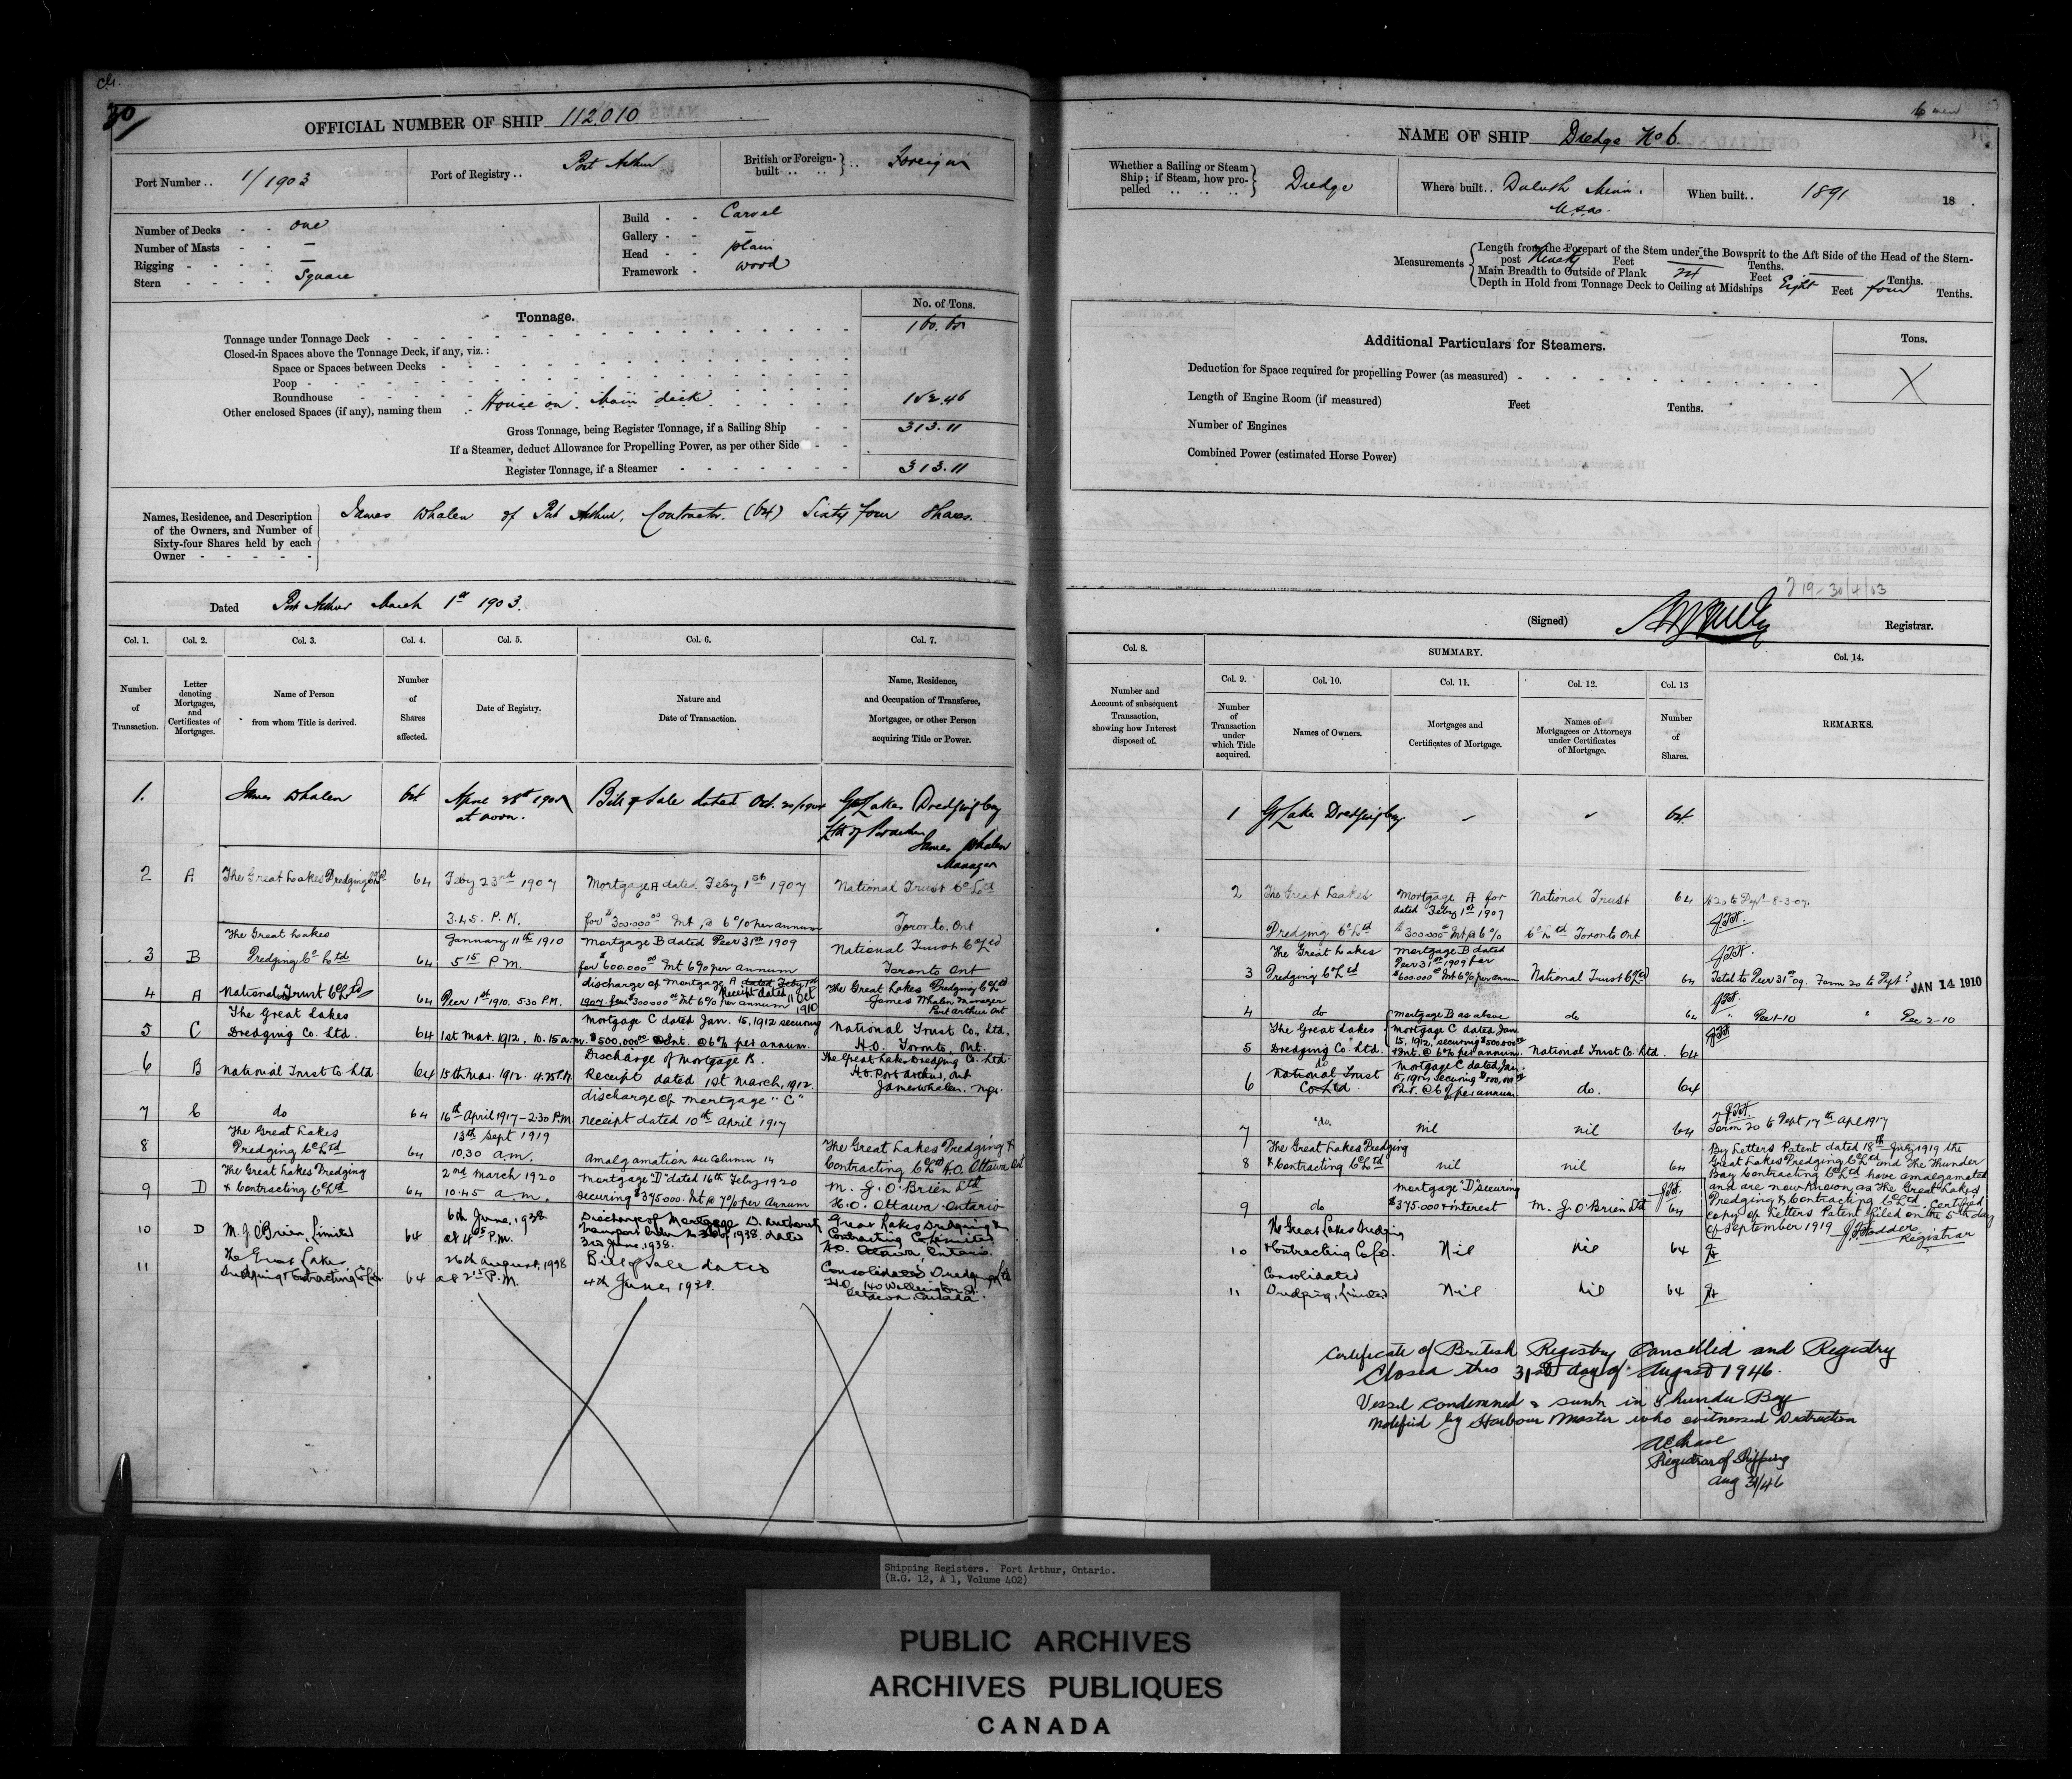 30
OFFICIAL NUMBER OF SHIP 112.010
Port Number .. 1/1903
Port of Registry .. Port Arthur
British or Foreign-built .. .. } .. Foreign
Number of Decks - - one
Number of Masts - - —
Rigging - - - - —
Stern - - - - Square
Build - - Carvel
Gallery - - —
Head - - plain
Framework - wood
Tonnage.
No. of Tons.
Tonnage under Tonnage Deck
160.65
Closed-in Spaces above the Tonnage Deck, if any, viz. :
Space or Spaces between Decks
Poop
Roundhouse
Other enclosed Spaces (if any), naming them House on Main deck
152.46
Gross Tonnage, being Register Tonnage, if a Sailing Ship
313.11
If a Steamer, deduct Allowance for Propelling Power, as per other Side
Register Tonnage, if a Steamer
313.11
Names, Residence, and Description
of the Owners, and Number of
Sixty-four Shares held by each
Owner
James Whalen of Port Arthur, Contractor. (64) Sixty four Shares.
Dated Port Arthur March 1st 1903.
Col. 1. Col. 2. Col. 3. Col. 4. Col. 5. Col. 6. Col. 7.
Number of Transaction.
Letter denoting Mortgages, and Certificates of Mortgages.
Name of Person from whom Title is derived.
Number of Shares affected.
Date of Registry.
Nature and Date of Transaction.
Name, Residence, and Occupation of Transferee, Mortgagee, or other Person acquiring Title or Power.
1. James Whalen 64 April 28th at noon. Bill of Sale dated Oct. 20/1904 Gt Lakes Dredging Coy
James Whalen
Manager
2 A The Great Lakes Dredging Co Ltd 64 Feby 23rd 1907 Mortgage A dated Feby 1st 1907 National Trust Co Ltd
3.45. P.M. for $300.000 00 Int @ 6% per annum Toronto. Ont
The Great Lakes January 11th 1910 Mortgage B dated Decr 31st 1909 National Trust Co Ltd
3 B Dredging Co Ltd 64 5 15 P.M. for $600.000 00 Int 6% per annum Toronto Ont
discharge of Mortgage A dated Feby 1st
4 A National Trust Co Ltd 64 Decr 1st 1910. 5.30 P.M. 1907 for $300000 00 Int 6% per annum, Receipt dated 11 Oct 1910 The Great Lakes Dredging Co Ltd
James Whalen Manager
Port Arthur Ont
The Great Lakes Mortgage C dated Jan. 15, 1912 securing National Trust Co., Ltd.
5 C Dredging Co. Ltd. 64 1st Mar. 1912. 10.15 a.m. $500,000 00 & Int. @ 6% per annum. H.O. Toronto, Ont.
Discharge of Mortgage B. The Great Lakes Dredging Co. Ltd.
6 B National Trust Co Ltd 64 15th Mar. 1912. 4.25 P.M. Receipt dated 1st March, 1912. H.O. Port Arthur, Ont
James Whalen. Mgr.
discharge of Mortgage "C"
7 C do 64 16th April 1917 - 2.30 P.M. receipt dated 10th April 1917
The Great Lakes 13th Sept 1919
8 Dredging Co Ltd 64 10.30 a.m. Amalgamation see Column 14 The Great Lakes Dredging &
Contracting Co Ltd H.O. Ottawa Ont
The Great Lakes Dredging 2nd March 1920 Mortgage "D" dated 16th Feby 1920 M. J. O'Brien Ltd
9 D & Contracting Co Ltd 64 10.45 a m. securing $375.000. Int @ 7% per Annum H.O. Ottawa Ontario
10 D M. J. O'Brien, Limited 64 6th June, 1938 at 4 05 P.M. Discharge of Mortgage D. Authority
of 1938. dated
3rd June, 1938.
Great Lakes Dredging &
Contracting Co, Limited
H.O. Ottawa, Ontario.
11 The Great Lakes
Dredging & Contracting Co Ltd 64 26th August, 1938 at 2 15 P.M. Bill of Sale dated
4th June, 1938.
Consolidated Dredging Ltd
H.O. 140 Wellington St.
Ottawa, Canada.
6 men
NAME OF SHIP Dredge No 6.
Whether a Sailing or Steam Ship; if Steam, how propelled .. .. .. } Dredge
Where built .. Duluth Minn. U.S.A.
When built .. 1891 18 .
Measurements
Length from the Forepart of the Stem under the Bowsprit to the Aft Side of the Head of the Stern-
post Ninety Feet — Tenths.
Main Breadth to Outside of Plank Feet — Tenths.
Depth in Hold from Tonnage Deck to Ceiling at Midships Eight Feet four Tenths.
Additional Particulars for Steamers.
Tons.
Deduction for Space required for propelling Power (as measured)
X
Length of Engine Room (if measured) Feet Tenths.
Number of Engines
Combined Power (estimated Horse Power)
30/4/03
(Signed) Registrar.
Col. 8. SUMMARY. Col. 14.
Col. 9. Col. 10. Col. 11. Col. 12. Col. 13
Number and Account of subsequent Transaction, showing how Interest disposed of.
Number of Transaction under which Title acquired.
Names of Owners.
Mortgages and Certificates of Mortgage.
Names of Mortgagees or Attorneys under Certificates of Mortgage.
Number of Shares.
REMARKS.
1 Gt Lakes Dredging Coy. 64
2 The Great Lakes Mortgage A for
dated Feby 1st 1907 National Trust 64
Dredging Co Ltd $300000 00 Int @ 6% Co Ltd Toronto Ont
The Great Lakes Mortgage B dated
Decr 31st 1909 for
3 Dredging Co Ltd $600.000 00 Int 6% per annum National Trust Co Ltd 64 Total to Decr 31st 09. Form 20 to Dept JAN 14 1910
4 do Mortgage B as above do 64 " Dec 1-10 " Dec 2-10
The Great Lakes Mortgage C dated Jan.
5 Dredging Co Ltd. 15, 1912, securing $500000 00
& Int. @ 6% per annum. National Trust Co. Ltd. 64
6 do
National Trust
Co Ltd Mortgage C dated Jan.
15, 1912, securing $500,000 00
Int. @ 6% per annum do. 64
7 do. nil nil 64 Form 20 to Dept 17th Apl 1917
The Great Lakes Dredging
8 & Contracting Co Ltd nil nil 64
By Letters Patent dated 18th July 1919 the
Great Lakes Dredging Co Ltd and The Thunder
Bay Contracting Co Ltd have amalgamated
and are now known as The Great Lakes
Dredging & Contracting Co Ltd. Certified
copy of Letters Patent filed on the 5th day
of September 1919
Registrar
9 do Mortgage "D" securing
$375.000 & interest M. J. O'Brien Ltd 64
The Great Lakes Dredging
10 & Contracting Co Ltd. Nil Nil 64
Consolidated
11 Dredging, Limited Nil Nil 64
Certificate of British Registry Cancelled and Registry
Closed this 31st day of August 1946.
Vessel condemned & sunk in Thunder Bay
Notified by Harbour Master who witnessed Destruction
Registrar of Shipping
Aug 31/46
Shipping Registers. Port Arthur, Ontario.
(R.G. 12, A 1, Volume 402)
PUBLIC ARCHIVES
ARCHIVES PUBLIQUES
CANADA